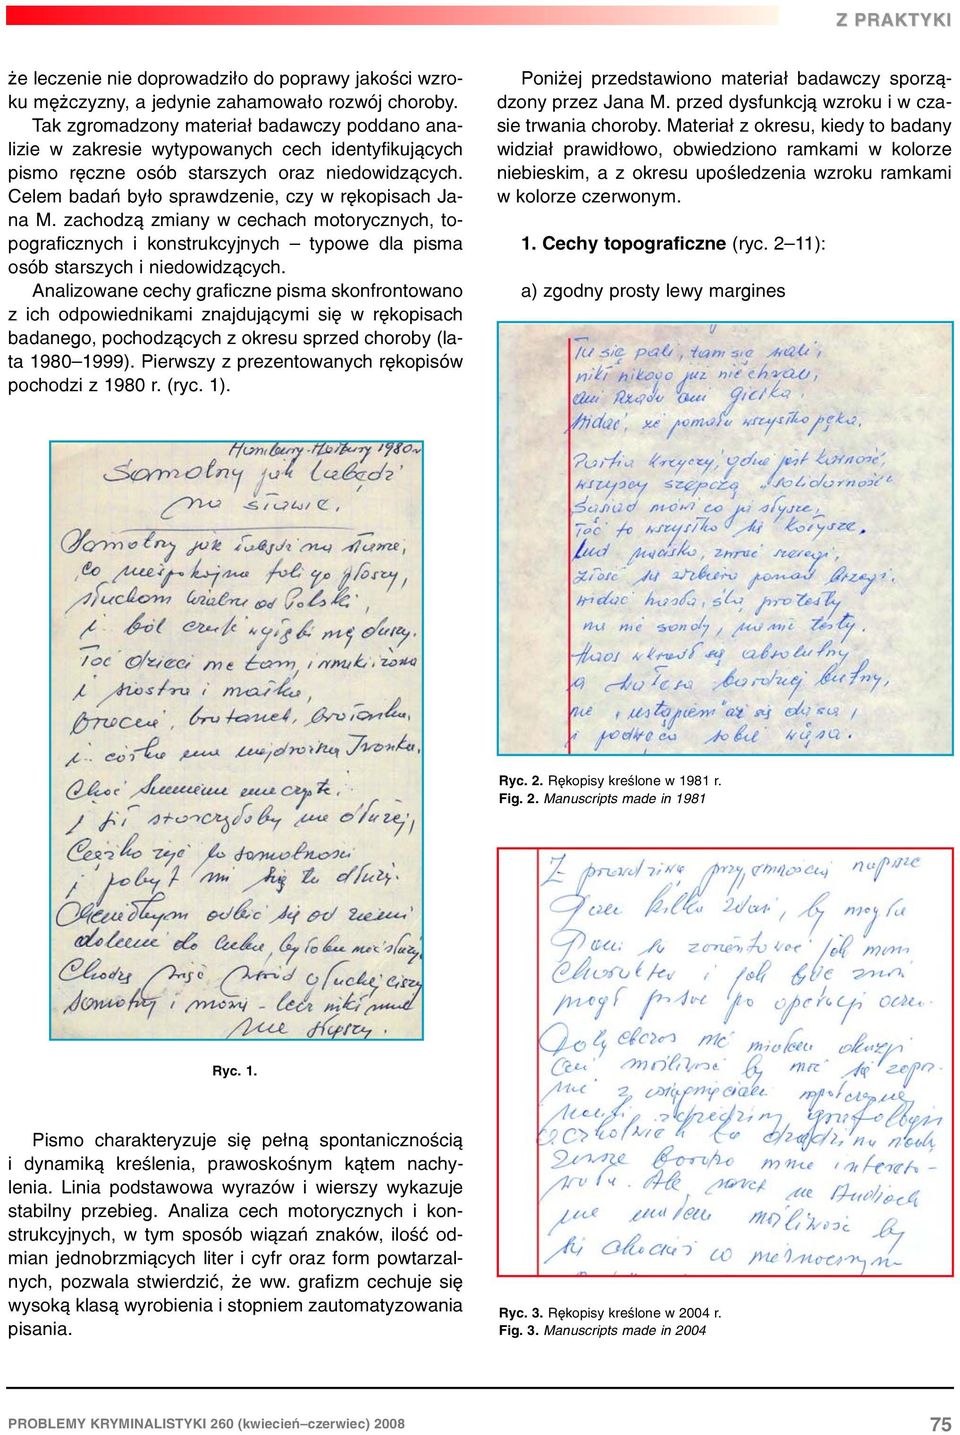 Z PRAKTYKI
że leczenie nie doprowadziło do poprawy jakości wzro-
ku mężczyzny, a jedynie zahamowało rozwój choroby.
Tak zgromadzony materiał badawczy poddano ana-
lizie w zakresie wytypowanych cech identyfikujących
pismo ręczne osób starszych oraz niedowidzących.
Celem badań było sprawdzenie, czy w rękopisach Ja-
na M. zachodzą zmiany w cechach motorycznych, to-
pograficznych i konstrukcyjnych – typowe dla pisma
osób starszych i niedowidzących.
Analizowane cechy graficzne pisma skonfrontowano
z ich odpowiednikami znajdującymi się w rękopisach
badanego, pochodzących z okresu sprzed choroby (la-
ta 1980–1999). Pierwszy z prezentowanych rękopisów
pochodzi z 1980 r. (ryc. 1).
1980
Samotny jak Łabędź
na stawie.
Samotny jak łabędź na stawie,
co niespokojne fali go płoszy,
słuchom od Polski,
i ból czuć w głębi mej duszy.
Toć dzieci me tam, i wnuki i żona
i siostra i matka,
bratanek, bratanka,
i córka ma najdroższa Iwonka.
Choć
i jił starczyłoby na dłużej,
Ciężko żyć to samotności
i pobyt mi się tu dłuży.
Chciałbym odbić się od ziemi
do by tobie móc służyć.
Chodzę wśród głuchej ciszy
samotny i mówię - lecz nikt mnie
nie słyszy.
Ryc. 1.
Pismo charakteryzuje się pełną spontanicznością
i dynamiką kreślenia, prawoskośnym kątem nachy-
lenia. Linia podstawowa wyrazów i wierszy wykazuje
stabilny przebieg. Analiza cech motorycznych i kon-
strukcyjnych, w tym sposób wiązań znaków, ilość od-
mian jednobrzmiących liter i cyfr oraz form powtarzal-
nych, pozwala stwierdzić, że ww. grafizm cechuje się
wysoką klasą wyrobienia i stopniem zautomatyzowania
pisania.
Poniżej przedstawiono materiał badawczy sporzą-
dzony przez Jana M. przed dysfunkcją wzroku i w cza-
sie trwania choroby. Materiał z okresu, kiedy to badany
widział prawidłowo, obwiedziono ramkami w kolorze
niebieskim, a z okresu upośledzenia wzroku ramkami
w kolorze czerwonym.
1. Cechy topograficzne (ryc. 2–11):
a) zgodny prosty lewy margines
Tu się pali, tam się wali,
nikt nikogo już nie chwali,
ani Rządu ani Gierka.
Widać, że pomału wszystko pęka.
Partia krzyczy, gdzie jest karność,
wszyscy szepczą „Solidarność"
Sąsiad mówi co ja słyszę,
Toć to wszystko się kołysze.
Lud miasta,
złość się wzbiera ponad brzegi.
widać hasła, ślą protesty
na nic sondy, na nic testy.
Chaos wkradł się absolutny
a bardziej butny,
nie „ustąpiem" aż się
i podwójco sobie
Ryc. 2. Rękopisy kreślone w 1981 r.
Fig. 2. Manuscripts made in 1981
Z prawdziwą przyjemnością napiszę
Pani kilka zdań, by mogła
Pani to zorientować jak mam
Charakter i jak być może
mogł pisać po operacji oczu.
Doty chczas nie miałem okazji
ani możliwość by móc się zapoz-
nać z osiągnięciami współczesnej
Nauki z dziedziny grafologii
aczkolwiek ta dziedzina nauk
zawsze bardzo mnie intereso-
wała. Ale, nawet na studiach
nie miałem możliwość by
się chociaż co
Ryc. 3. Rękopisy kreślone w 2004 r.
Fig. 3. Manuscripts made in 2004
PROBLEMY KRYMINALISTYKI 260 (kwiecień–czerwiec) 2008
75